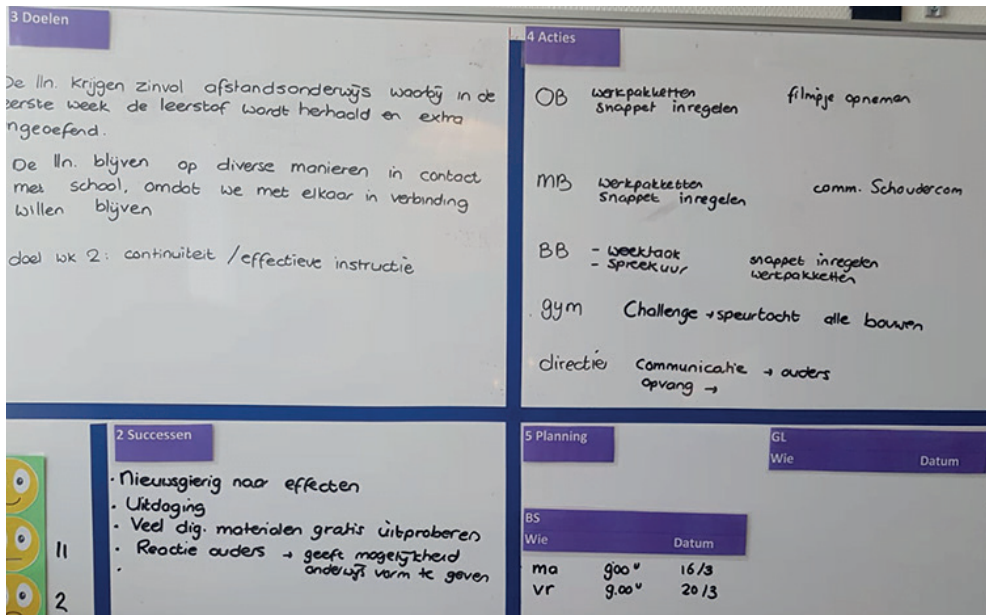 3 Doelen
De lln. krijgen zinvol afstandsonderwijs waarbij in de
eerste week de leerstof wordt herhaald en extra
ngeoefend.
De lln. blijven op diverse manieren in contact
met school, omdat we met elkaar in verbinding
willen blijven
doel wk 2: continuiteit / effectieve instructie
4 Acties
OB werkpakketten filmpje opnemen
snappet inregelen
MB werkpakketten comm. Schoudercom
snappet inregelen
BB - weektaak snappet inregelen
- spreekuur werkpakketten
gym Challenge → speurtocht alle bouwen
directie communicatie → ouders
opvang →
2 Successen
· Nieuwsgierig naar effecten
· Uitdaging
· Veel dig. materialen gratis uitproberen
· Reactie ouders → geeft mogelijkheid
onderwijs vorm te geven
·
11
2
5 Planning
GL
Wie Datum
BS
Wie Datum
ma 900 u 16/3
vr 9.00 u 20/3